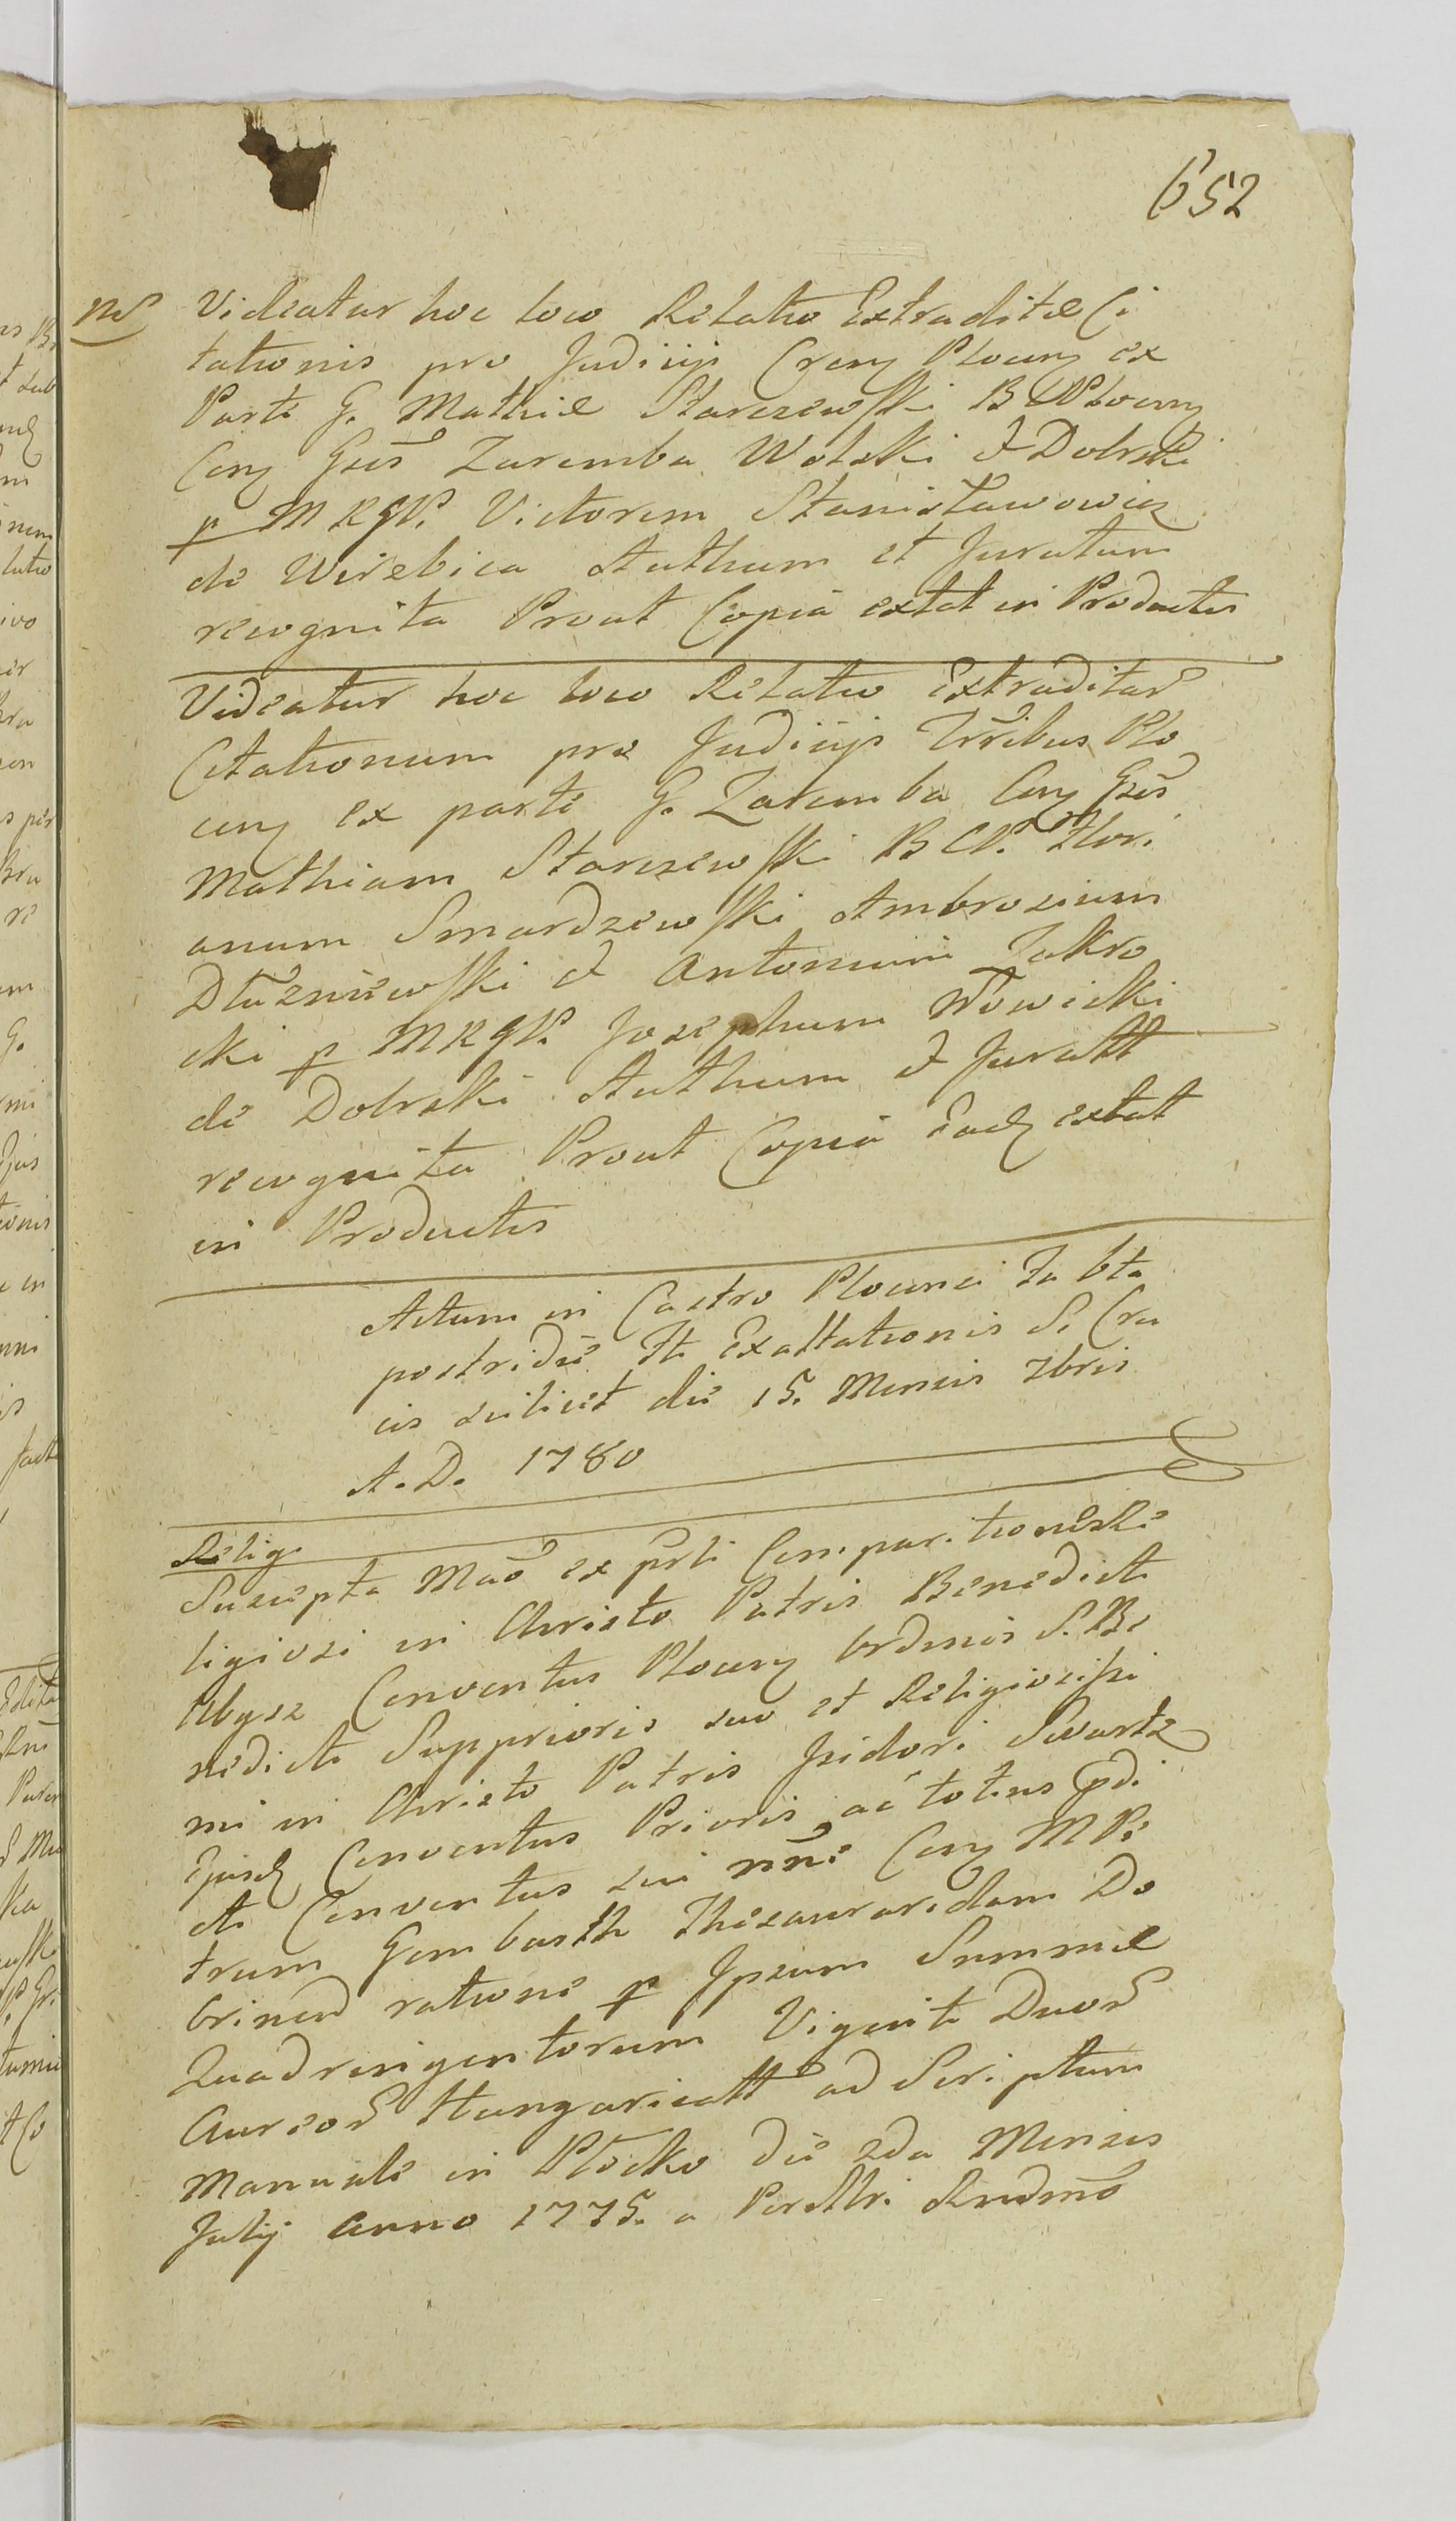 652
Nd Videatur hoc loco Relatio Extraditæ Ci
tationis pro Judiiis Cren Plocen ex
Parte G. Mathiæ Starczewski B Plocen
Con Gsūs Zaremba Wolski & Dobrski
p MRGP. Victorem Stanisławowicz
de Wirzbica Authum et Juratum
recognita Prout Copia extat in Productis
Videatur hoc loco Relatio Extraditar
Citationum pro Judiiis Trribus Plo
cen ex parte G. Zaremba Con Gsūs
Mathiam Starczewski B CP. Flori
anum Smardzewski Ambrosium
Dłużniewski & Antonium Zakro
cki p MRGP. Josephum Nowicki
de Dobrski Authum & Juratt
recognita Prout Copia Ead extat
in Productis
Actum in Castro Plocensi Sabbta
postridie Fti Exaltationis S. Cru
cis scilicet die 15. Mensis 7bris
A. D. 1780
Relig.
Suscepta Mao ex psti Comparitione Re
ligiosi in Christo Patris Benedicti
Abysz Conventus Plocen Ordinis S. Be
nedicti Supprioris suo et Religiosissi
mi in Christo Patris Isidori Swartz
Ejusd Conventus Prioris ac totius pdi
cti Conventus sui nn̄e Con MPe
trum Gombarth Thesauraridam Do
brinen ratione p Ipsum Summæ
Quadringentorum Viginti Duor
Aureor Hungaricatt ad Scriptum
Manuale in Płocko die 2da Mensis
Julij Anno 1775. a Perlltri Rndmo